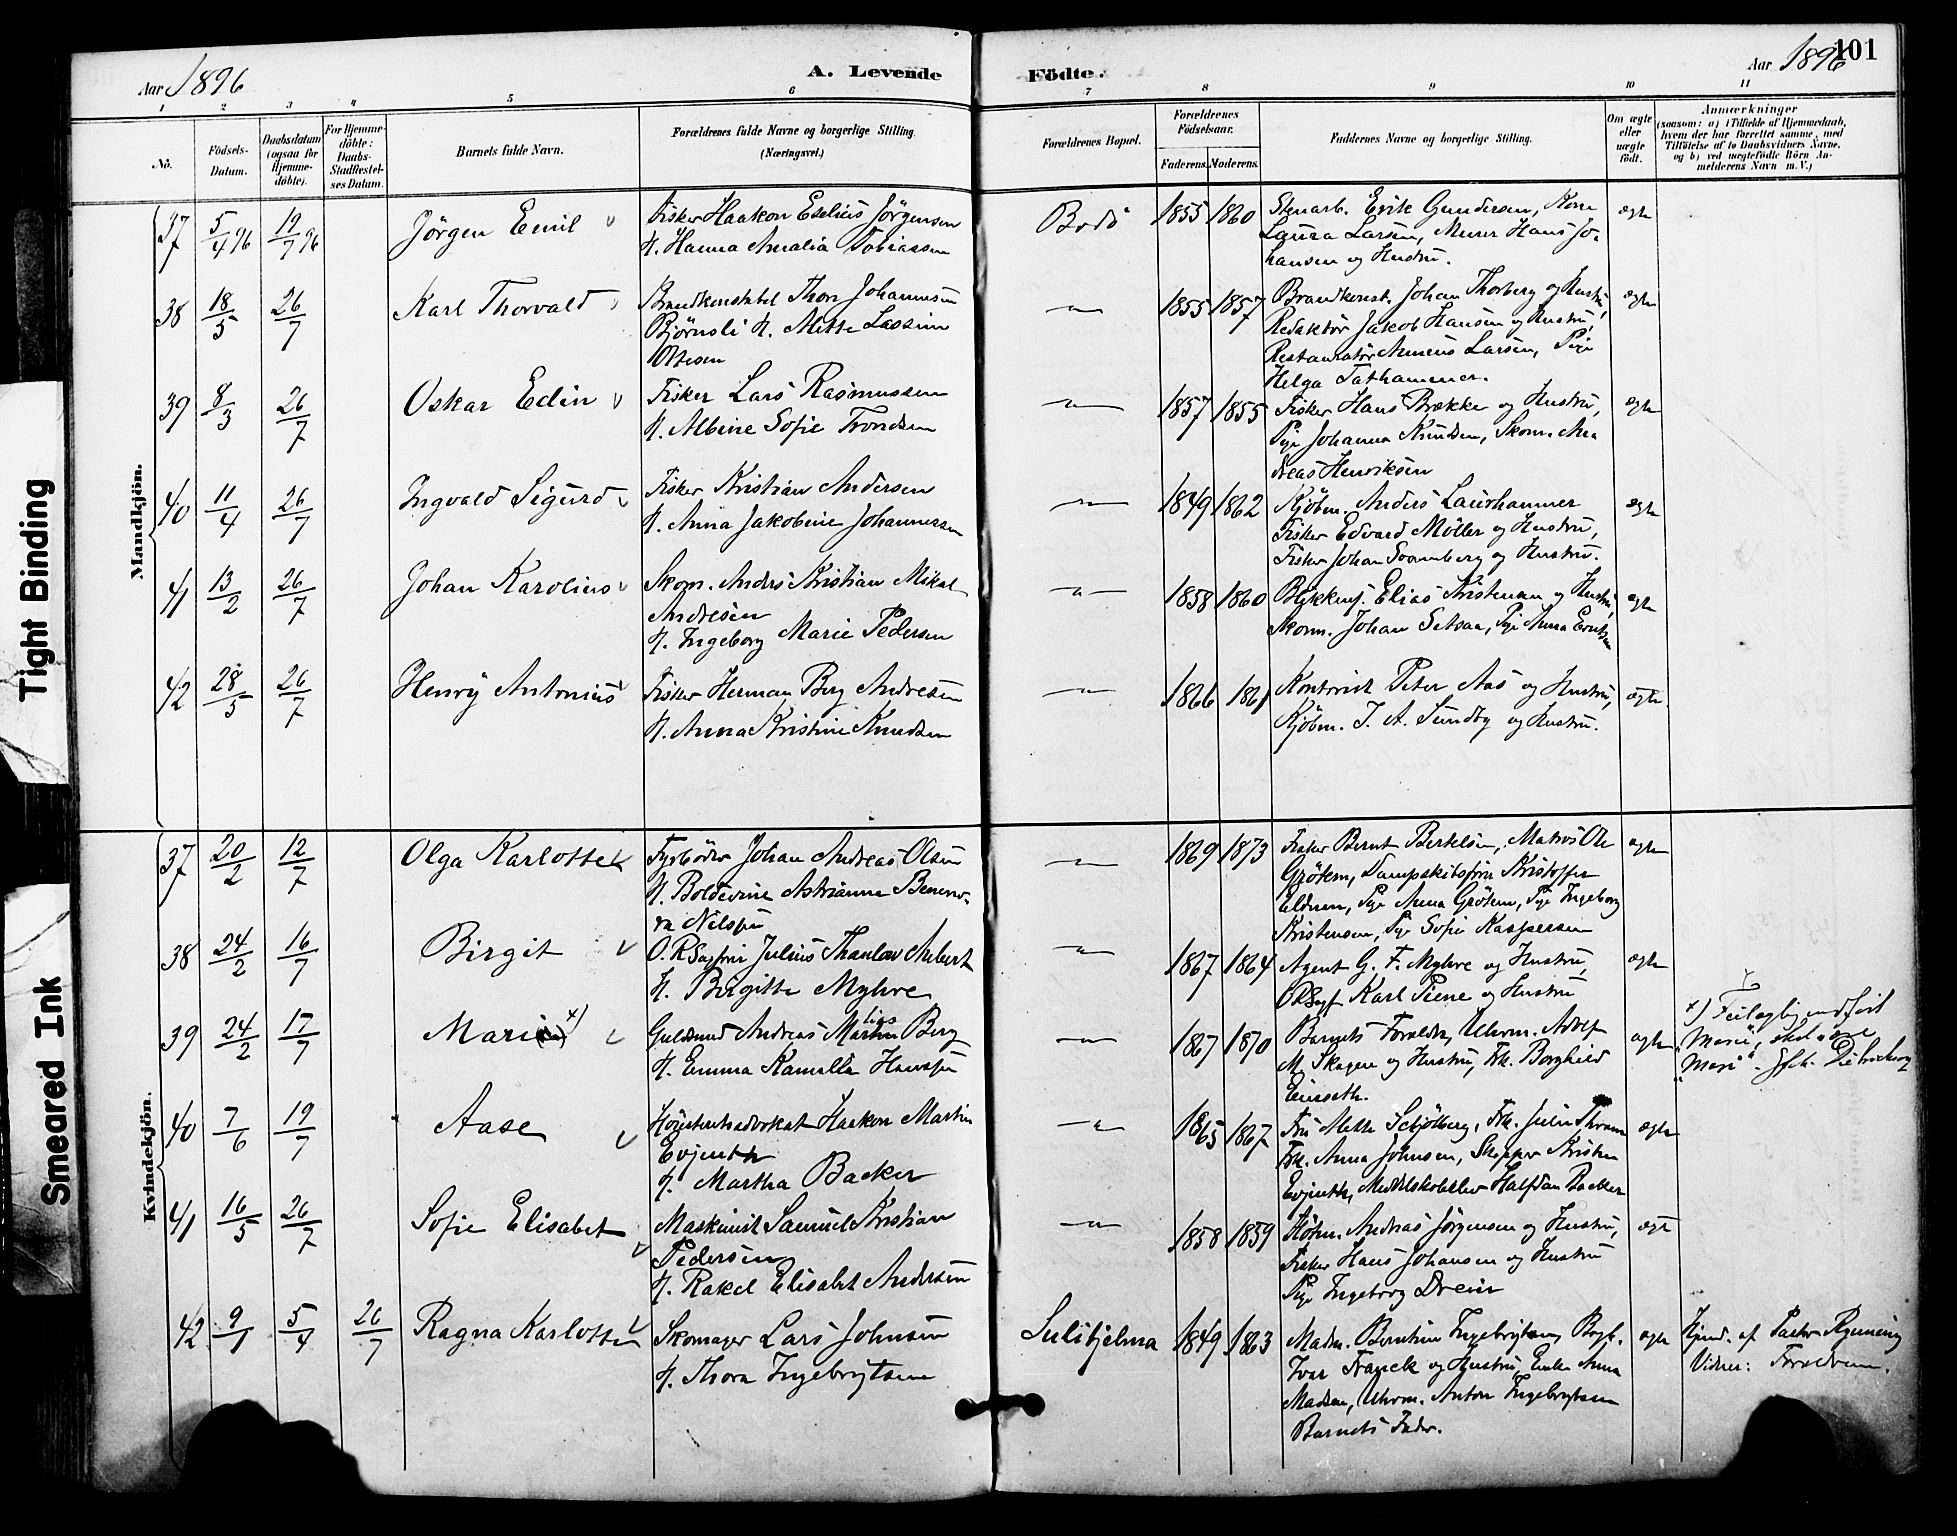 Aar 1896
A. Levende
Födte.
Aar 1896
101
1 2 3 4 5 6 7 8 9 10 11
No.
Födsels-
Datum.
Daabsdatum
(ogsaa for
Hjemme-
döbte).
For Hjemme-
döbte:
Daabs-
Stadfæstel-
ses Datum.
Barnets fulde Navn.
Forældrenes fulde Navne og borgerlige Stilling.
(Næringsvei.)
Forældrenes Bopæl.
Forældrenes
Födselsaar.
Faderens. Moderens.
Faddernes Navne og borgerlige Stilling.
Om ægte
eller
uægte
födt.
Anmærkninger
(saasom: a) i Tilfælde af Hjemmedaab,
hvem der har forrettet samme, med
Tilföielse af to Daabsvidners Navne,
og b) ved uægtefödte Börn An-
melderens Navn m. V.)
Mandkjön.
37 5/4 96 19/7 96 Jörgen Emil
Fisker Haakon Eselius Jörgensen
H. Hanna Amalia Tobiassen
Bodö 1855 1860
Stenarb. Erik Gundersen, Kone
Laura Larsen, Murer Hans Jo-
hansen og Hustru.
ægte
38 18/5 26/7 Karl Thorvald
Brandkonstabel Thor Johannesen
Björnsli H. Mette Lassine
Ottesen
— " — 1855 1857
Brandkonst. Johan Thorberg og Hustru,
Redaktör Jakob Hansen og Hustru,
Restauratör Larsen, Pige
Helga
ægte
39 8/3 26/7 Oskar Edin
Fisker Lars Rasmussen
H. Albine Sofie Trondsen
— " — 1857 1855
Fisker Hans Brække og Hustru,
Pige Johanna Knudsen, Skom. An-
dreas Henriksen
ægte
40 11/4 26/7 Ingvald Sigurd
Fisker Kristian Andersen
H. Anna Jakobine Johannessen
— " — 1849 1862
Kjöbm. Anders
Fisker Edvard Möller og Hustru,
Fisker Johan og Hustru.
ægte
41 13/2 26/7 Johan Karolius
Skom. Anders Kristian Mikal
Andresen
H. Ingeborg Marie Pedersen
— " — 1858 1860
Elias Kristensen og Hustru,
Skom. Johan Setsaa, Pige Anna
ægte
42 28/5 26/7 Henry Antonius
Fisker Herman Berg Andresen
H. Anna Kristine Knudsen
— " — 1866 1861
Kontorist Peter Aas og Hustru,
Kjöbm. J. A. Sundby og Hustru.
ægte
Kvindekjön.
37 20/2 12/7 Olga Karlotte
Fyrböder Johan Andreas Olsen
H. Boldevine Astrianna
Nilsen
— " — 1869 1873
Fisker Bernt Bertelsen, Matros Ole
Grötem, Kristoffer
Pige Anna Grötem, Pige Ingeborg
Kristensen, Pige Sofie Kaspersen
ægte
38 24/2 16/7 Birgit
O.R.Sagförer Julius Thaulow Aubert
H. Birgitte Myhre
— " — 1867 1864
Agent G. F. Myhre og Hustru,
ORSagf. Karl Piene og Hustru
ægte
39 24/2 17/7 Mari(e) x)
Guldsmed Andreas Martinius Berg
H. Emma Kamilla Hanssen
— " — 1867 1870
Barnets Forældre, Uhrm. Adolf
M. Skagen og Hustru, Frk. Borghild
Einseth.
ægte
x) Feilagtig indfört
"Marie", skal være
"Mari".
40 7/6 19/7 Aase
Höiesteretsadvokat Haakon Martin
Evjenth
H. Martha Backer
— " — 1865 1867
Fru Mette Schjölberg, Frk. Julie
Frk. Anna Johnsen, Skipper Kristen
Evjenth, Middelskoleelev Halfdan Backer
ægte
41 16/5 26/7 Sofie Elisabet
Maskinist Samuel Kristian
Pedersen
H. Rakel Elisabet Andersen
— " — 1858 1859
Andreas Jörgensen og Hustru,
Fisker Hans Johansen og Hustru
Pige Ingeborg Dreier
ægte
42 9/1 5/4 26/7 Ragna Karlotte
Skomager Lars Johnsen
H. Thora Ingebrigtsen
Sulitjelma 1849 1863
Madm. Berntine Ingebrigtsen,
Ivar Franck og Hustru, Enke Anna
Madsen, Uhrm. Anton Ingebrigtsen
Barnets Fader.
ægte
Hjmd. af Pastor
Vidner: Forældrene.
Tight Binding
Smeared Ink